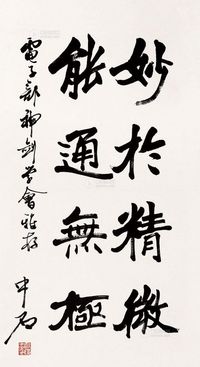 妙於精微
能通無極
電子部柳劍学會雅存
中石